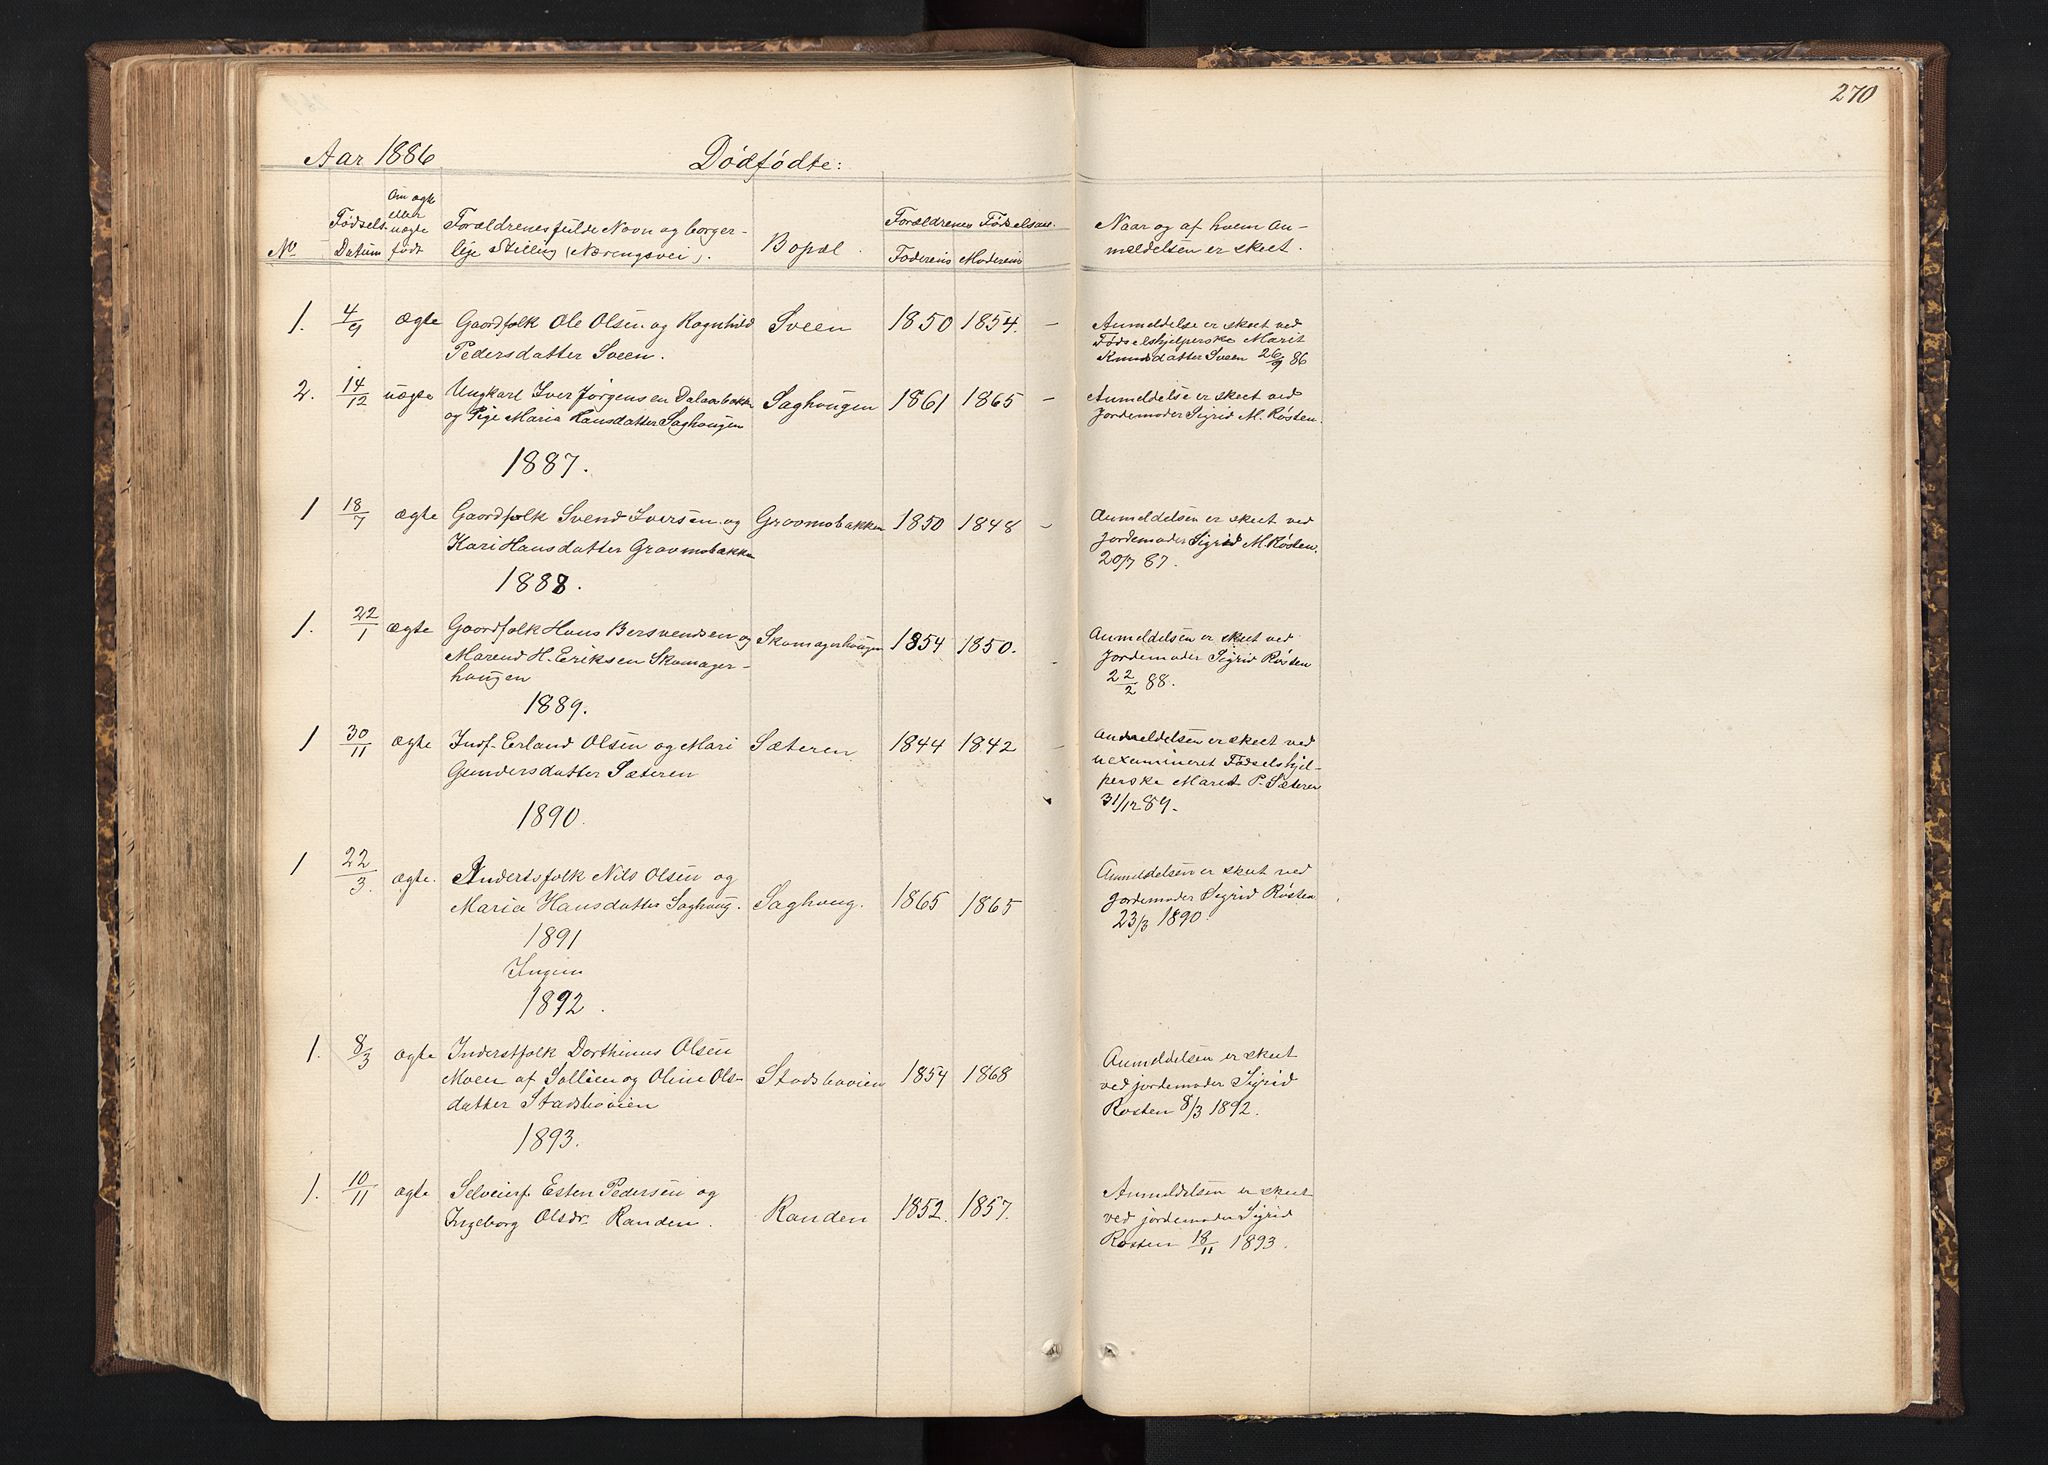 270
Aar 1886 Dødfødte:
No
Fødsels-
Datum
Om ægte
eller
uægte
født
Forældrenes fulde Navn og borger-
lige Stilling (Næringsvei).
Bopæl.
Forældrenes Fødselsaar.
Faderens Moderens
Naar og af hvem An-
meldelsen er skeet.
1. 4/9 ægte Gaardfolk Ole Olsen og Ragnhild Sveen 1850 1854. –
Pedersdatter Sveen.
Anmeldelse er skeet ved
Fødselshjelperske Marit
Knudsdatter Sveen 26/9 86
2. 14/12 uægte Ungkarl Iver Jørgensen Dalaasbakke Saghougen 1861 1865 –
og Pige Maria Hansdatter Saghougen
Anmeldelse er skeet ved
Jordemoder Sigrid M. Røsten.
1887.
1 18/7 ægte Gaardfolk Svend Iversen og Gravmobakken 1850 1848 –
Kari Hansdatter Gravmobakken
Anmeldelsen er skeet ved
Jordemoder Sigrid M. Røsten.
20/7 87.
1888.
1. 22/1 ægte Gaardfolk Hans Bersvendsen og Skomagerhougen 1854 1850.
Marend H. Eriksen Skomager-
hougen
Anmeldelsen er skeet ved
Jordemoder Sigrid Røsten
22/2 88.
1889.
1 30/11 ægte Indf. Erland Olsen og Mari Sæteren 1844 1842
Gundersdatter Sæteren
Anmeldelsen er skeet ved
uexamineret Fødselshjel-
perske Marit P. Sæteren
31/12 89.
1890.
1 22/3. ægte. Inderstfolk Nils Olsen og
Maria Hansdatter Saghoug. Saghoug. 1865 1865
Anmeldelsen er skeet ved
Jordemoder Sigrid Røsten
23/3 1890.
1891
Ingen
1892.
1. 8/3 ægte Inderstfolk Dorthinus Olsen
Moen af Sollien og Oline Ols- Stadshøvien 1854 1868
datter Stadshøvien
Anmeldelsen er skeet
ved jordemoder Sigrid
Røsten 8/3 1892.
1893.
1. 10/11 ægte Selveierf. Esten Pedersen og
Ingeborg Olsdr. Randen. Randen 1852. 1857.
Anmeldelsen er skeet
ved jordemoder Sigrid
Røsten 18/11 1893.